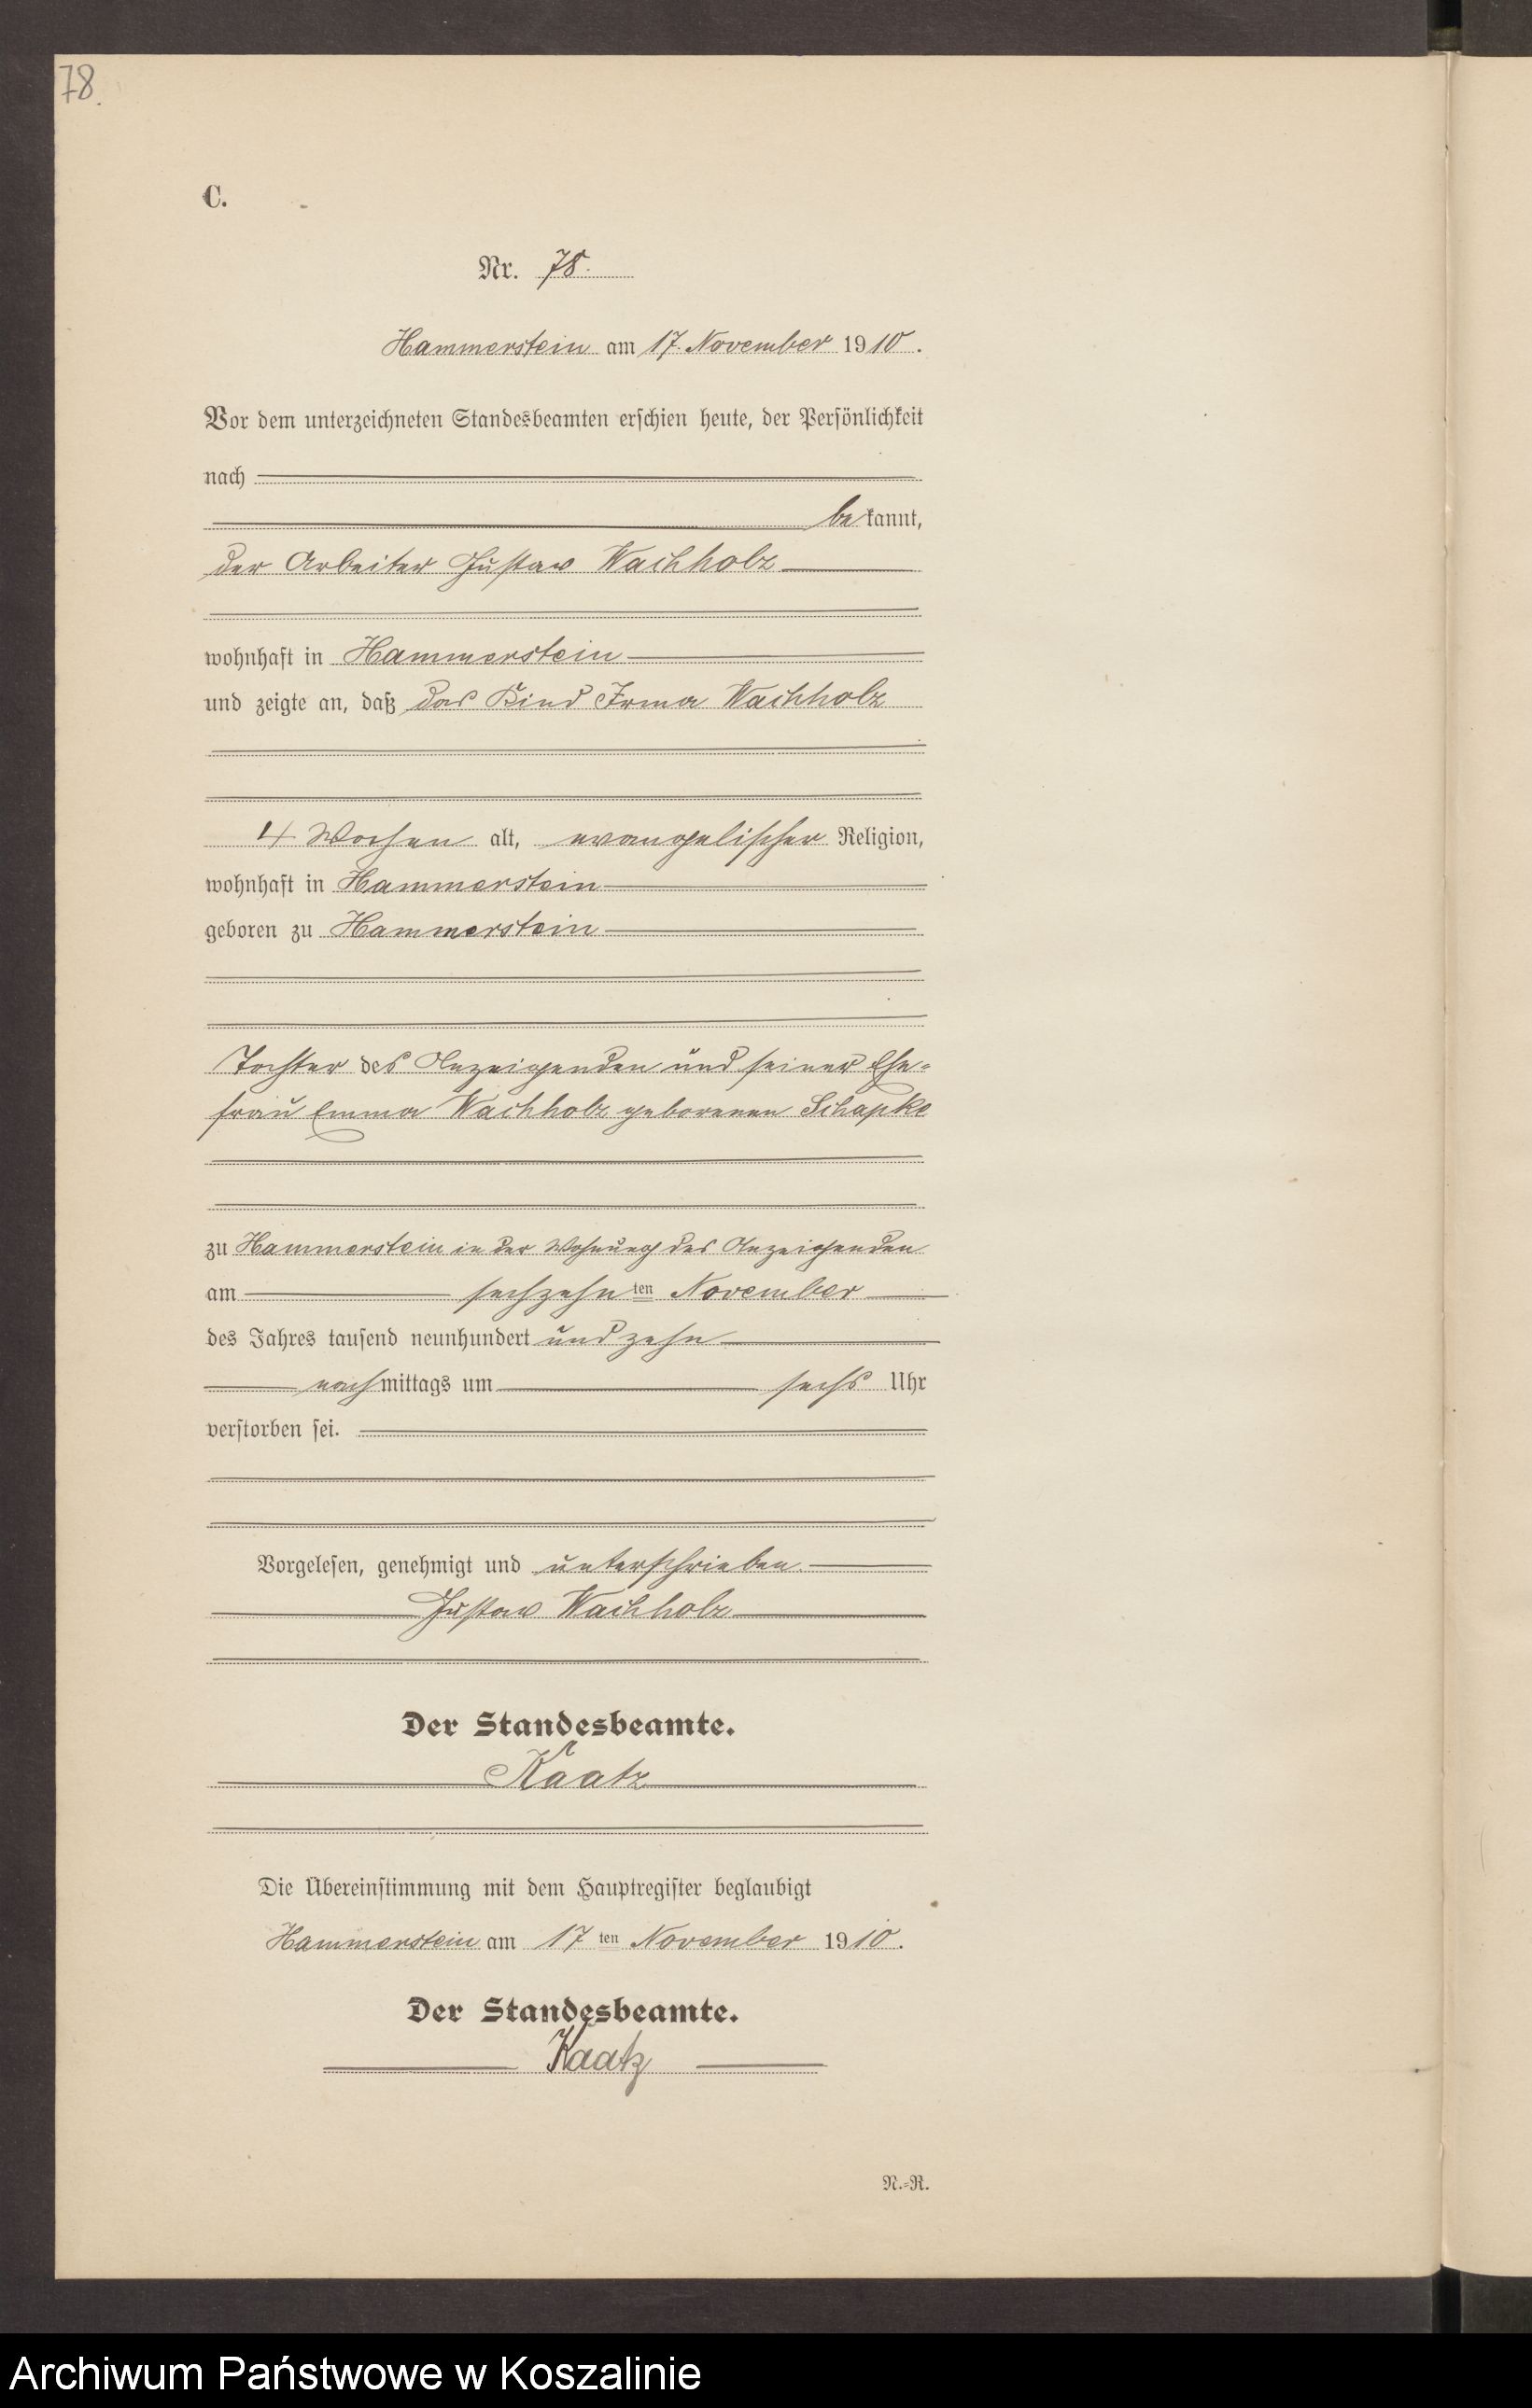 78.
C.
Nr. 78.
Hammerstein am 17. November 1910.
Vor dem unterzeichneten Standesbeamten erschien heute, der Persönlichkeit
nach
bekannt,
der Arbeiter Gustav Wachholz
wohnhaft in Hammerstein
und zeigte an, daß das Kind Irma Wachholz
4 Wochen alt, evangelischer Religion,
wohnhaft in Hammerstein
geboren zu Hammerstein
Tochter des Anzeigenden und seiner Ehe-
frau Emma Wachholz geborenen Schapke
zu Hammerstein in der Wohnung des Anzeigenden
am sechzehnten November
des Jahres tausend neunhundert und zehn
nachmittags um sechs Uhr
verstorben sei.
Vorgelesen, genehmigt und unterschrieben.
Gustav Wachholz
Der Standesbeamte.
Kaatz
Die Übereinstimmung mit dem Hauptregister beglaubigt
Hammerstein am 17ten November 1910.
Der Standesbeamte.
Kaatz
N.-R.
Archiwum Państwowe w Koszalinie